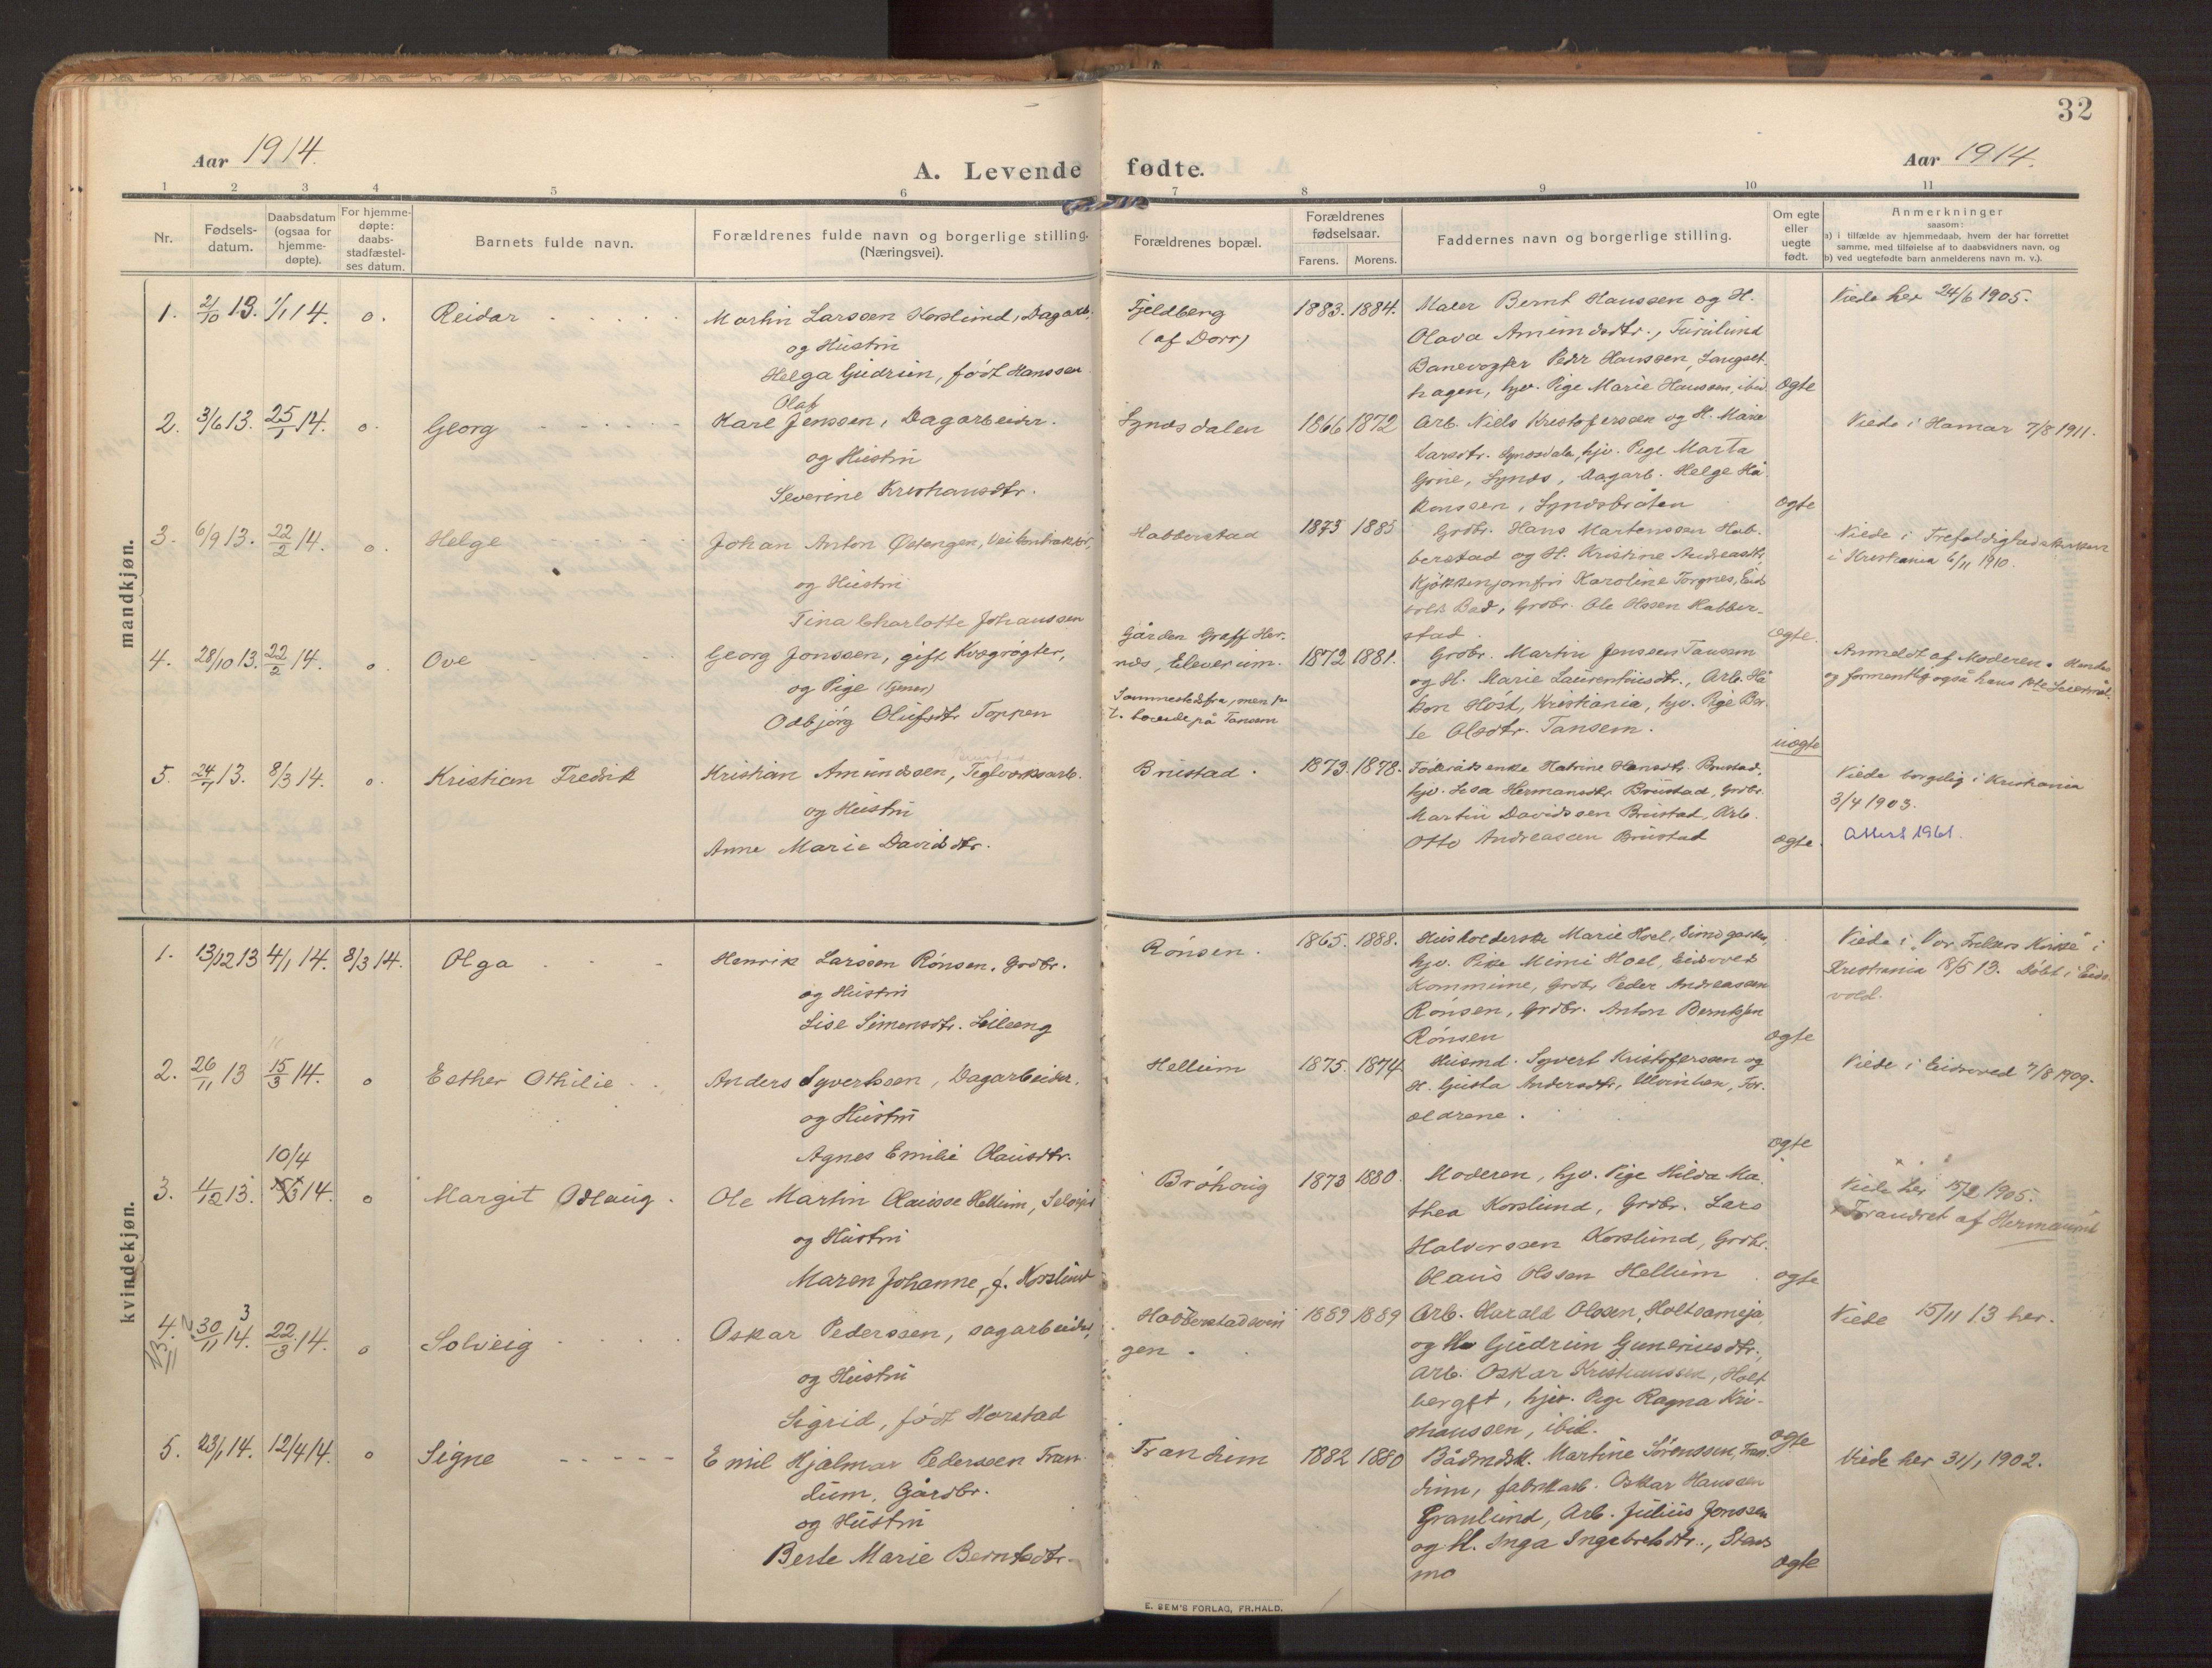 32
Aar 1914.
A. Levende fødte.
Aar 1914.
1 2 3 4 5 6 7 8 9 10 11
Nr.
Fødsels-
datum.
Daabsdatum
(ogsaa for
hjemme-
døpte).
For hjemme-
døpte:
daabs-
stadfæstel-
ses datum.
Barnets fulde navn.
Forældrenes fulde navn og borgerlige stilling.
(Næringsvei).
Forældrenes bopæl.
Forældrenes
fødselsaar.
Farens. Morens.
Faddernes navn og borgerlige stilling.
Om egte
eller
uegte
født.
Anmerkninger
saasom:
a) i tilfælde av hjemmedaab, hvem der har forrettet
samme, med tilføielse af to daabsvidners navn, og
b) ved uegtefødte barn anmelderens navn m. v.).
mandkjøn.
1. 21/10 13. 1/1 14. o. Reidar
Martin Larssen Korslund, Dagarb.
og Hustru
Helga Gudrun, født Hanssen
Fjeldberg
(af Dorr)
1883. 1884.
Maler Bernt Hanssen og H.
Olava Amundsdtr., Furulund
Banevogter Peder Hanssen, Langset-
hagen, hjv. Pige Marie Hanssen, ibid.
ægte
Viede her 24/6 1905.
2. 3/6 13. 25/1 14. o. Georg
Olaf
Karl Jenssen, Dagarbeider.
og Hustru
Severine Kristiansdtr.
Lyndsdalen
1866 1872
Arb. Niels Kristofersen og H. Marie
Larsdtr. Lyndsdalen, hjv. Pige Marta
Grue, Lynds, Dagarb. Helge Hå-
kenssen, Lyndsbråten
ægte
Viede i Hamar 7/8 1911.
3. 6/9 13. 22/2 14. o. Helge
Johan Anton Østengen, Veikontraktør,
og Hustru
Tina Charlotte Johanssen
Habberstad
1873 1885
Grdbr. Hans Martenssen Hab-
berstad og H. Kristine Andreasdtr.
Kjøkkenjomfru Karoline Torgnes, Eids
volds Bad, Grdbr. Ole Olssen Habber-
stad.
ægte.
Viede i Trefoldighedskirken
i Kristiania 6/11 1910.
4. 28/10 13. 22/2 14. o. Ove
Georg Jonssen, gift Kvægrøgter,
og Pige (Tjener)
Odbjørg Olufsdtr. Toppen
Gården Graff Her-
nes, Elverum.
Sammestedsfra, men p.
t. boende på Tansem
1872 1881.
Grdbr. Martin Jenssen Tansem
og H. Marie Laurentiusdtr., Arb. Hå-
kon Høst, Kristiania, hjv. Pige Ber-
te Olsdtr. Tansem.
uægte
Anmeldt af Moderen. Hendes
og formentlig også hans 1ste Leiermål.
5. 24/1 13. 8/3 14. o. Kristian Fredrik
Kristian Amundssen, Teglverksarb.
og Hustru
Anne Marie Davidsdtr.
Brustad.
1873. 1878.
Føderådsenke Katrine Hansdtr. Brustad,
hjv. Lisa Hermansdtr. Brustad, Grdbr.
Martin Davidssen Brustad, Arb.
Otto Andreassen Brustad
ægte.
Viede borgelig i Kristiania
3/4 1903.
Attest 1961.
kvindekjøn.
1. 13/12 13 4/1 14. 8/3 14. Olga
Henrik Larssen Rønsen, Grdbr.
og Hustru
Lise Simensdtr. Leileeng
Rønsen.
1865. 1888.
Husholderske Marie Hoel,
hjv. Pike Mimi Hoel, Eidsvold
Kommune, Grdbr. Peder Andreassen
Rønsen, Grdbr. Anton Berntsen
Rønsen
ægte
Viede i „Vor Frelsers Kirke" i
Kristiania 18/5 13. Døbt i Eids-
vold.
2. 26/11 13 15/3 14. o Esther Othilie
Anders Syvertssen, Dagarbeider.
og Hustru
Agnes Emilie Olausdtr.
Hellum
1875. 1874
Husmd. Syvert Kristoferssen og
H. Gusta Andersdtr., Ulvinlien, For-
ældrene.
ægte
Viede i Eidsvold 7/8 1909.
10/4
3. 4/12 13. 15/3 14. o Margit Odlaug.
Ole Martin Olausse Hellum, Selveier
og Hustru
Maren Johanne, f. Korslund
Bróhaug
1873 1880.
Moderen, hjv. Pige Hilda Ma-
thea Korslund, Grdbr. Lars
Halvorssen Korslund, Grdbr.
Olaus Olssen Hellum
ægte
Viede her 15/2 1905.
× Forandret af Hermanrud
4. 30/11 14. 3 22/3 14. o Solveig
Oskar Pederssen, sagarbeider,
og Hustru
Sigrid, født Horstad
Habberstadsvin
gen.
1889 1889
Arb. Harald Olssen, Holtsameja,
og Gudrun Guneriusdtr.,
Arb. Oskar Kristianssen, Holt
berget, hjv. Pige Ragna Kri-
stianssen, ibid.
ægte
Viede 15/11 13 her.
5. 23/1 14. 12/4 14. o Signe
Emil Hjalmar Pederssen Tran-
dum, Gårdbr.
og Hustru
Berte Marie Berntsdtr.
Trandum
1882 1880
Bådmdsk. Martine Sørenssen, Tran-
dum, fabrikarb. Oskar Hanssen
Granlund, Arb. Julius Jonssen
og H. Inga Ingebretsdtr., Stens
mo
ægte
Viede her 31/1 1902.
E. SEM'S FORLAG, FR.HALD.